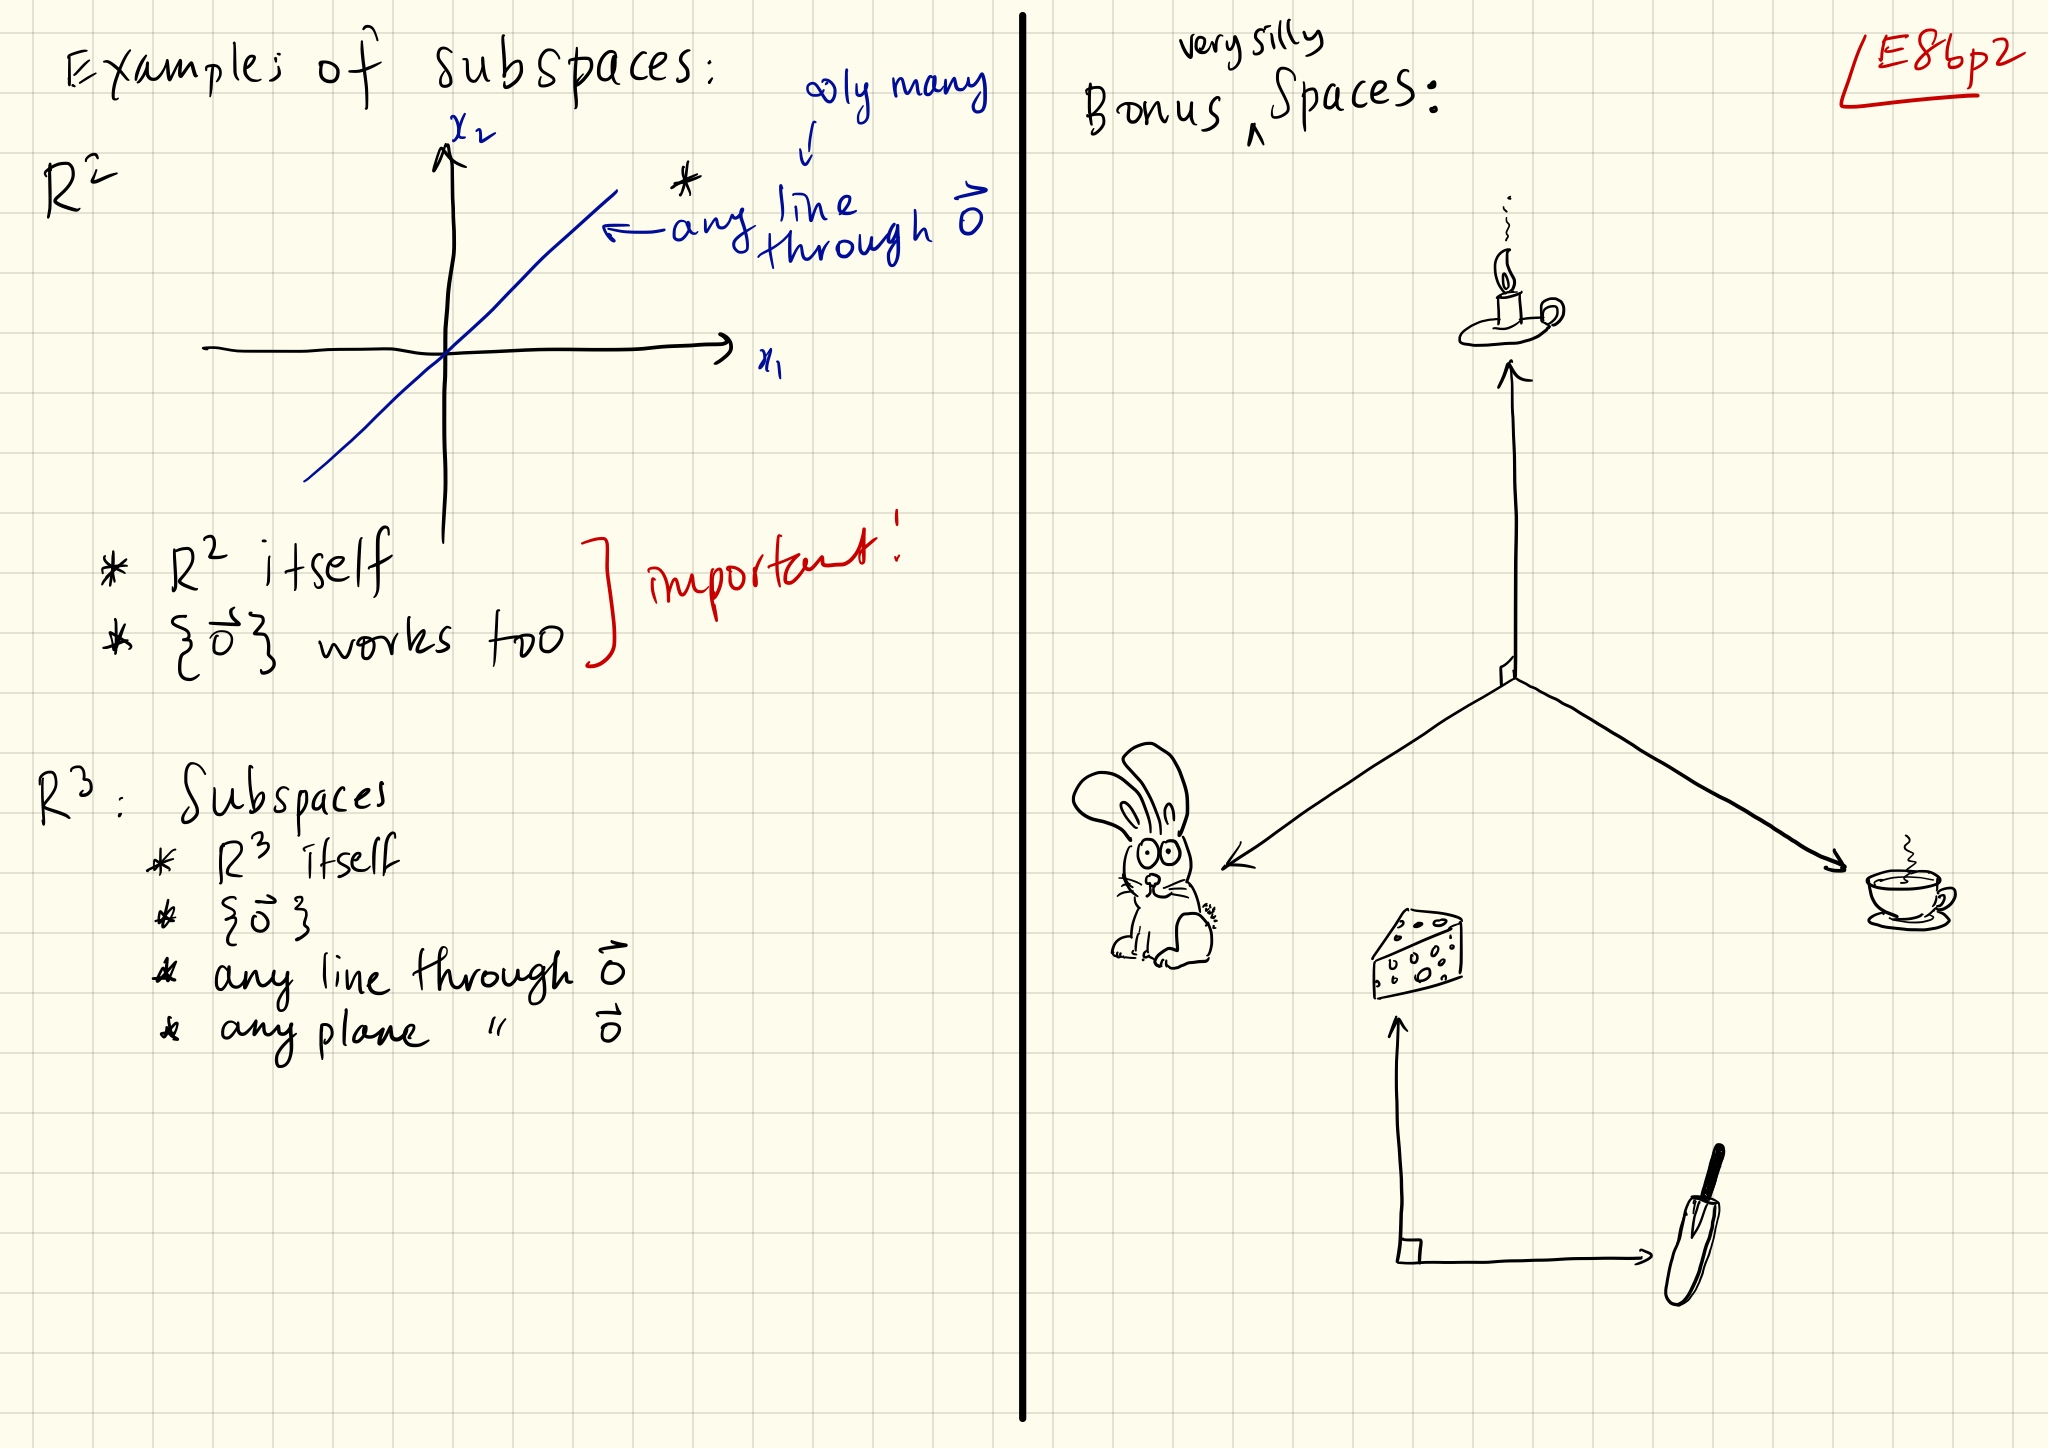 Examples of subspaces:
R²
x₂
∞ly many
*
any line
through 0⃗
x₁
* R² itself
* {0⃗} works too
important!
R³: Subspaces
* R³ itself
* {0⃗}
* any line through 0⃗
* any plane " 0⃗
very silly
Bonus ^ Spaces:
E8bp2